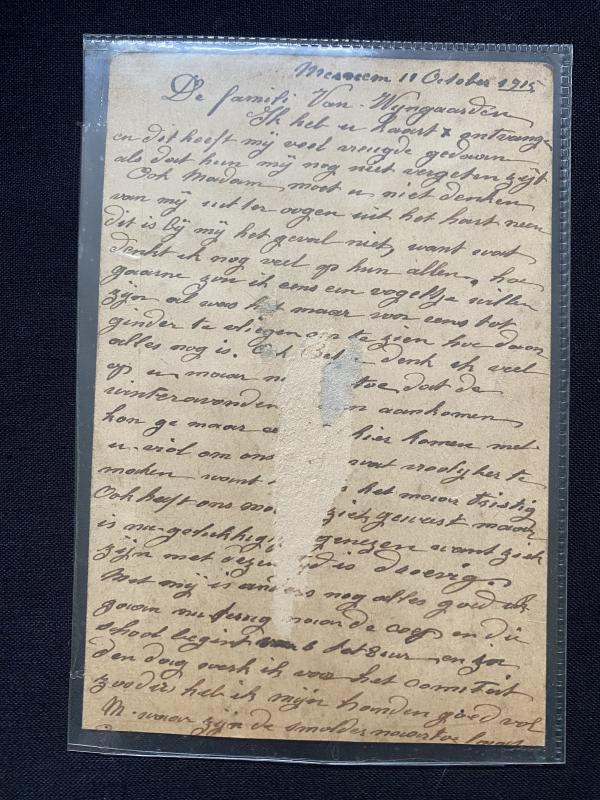 Merxem 11 October 1915
De famili Van-Wijngaarden
Ik heb u kaart x ontvange
en dit heeft mij veel vreugde gedaan
als dat hun mij nog niet vergeten zijt
Ook Madam moet u niet denken
van mij uit ter oogen uit het hart neen
dit is bij mij het geval niet, want wat
denkt ik nog veel op hun allen, hoe
gaarne zou ik eens een vogeltje willen
zijn al was het maar voor eens tot
ginder te vliegen om te zien hoe daar
alles nog is. denk ik veel
op u maar toe dat de
winteravonden aankomen
kon ge maar hier komen met
u viol om ons wat vroolijker te
maken want het maar tristig
Ook heeft ons ziek geweest maar
is nu gelukkig genezen want ziek
zijn met dezen tijd is droevig.
Met mij is anders nog alles goed ik
gaan nu terug naar de en die
school begint tot 8 uur en zoo
den daag werk ik voor het Comiteit
zooders heb ik mijn handen goed vol
M. waar zijn de smolders naartoe